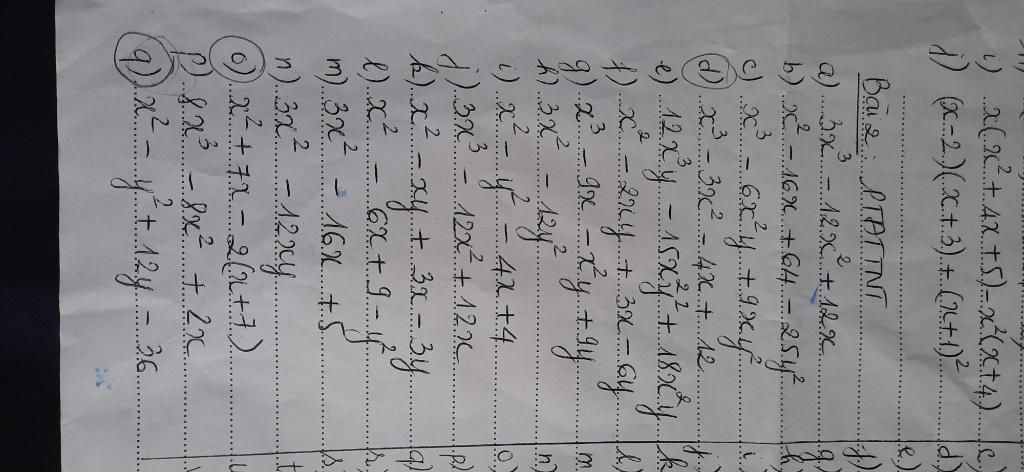 i) x(x² + 4x + 5) - x²(x + 4)
j) (x - 2)(x + 3) + (x + 1)²
Bài 2: PTATTNT
a) 3x³ - 12x² + 12x
b) x² - 16x + 64 - 25y²
c) x³ - 6x²y + 9xy²
d) x³ - 3x² - 4x + 12
e) 12x³y - 15x²y² + 18x²y
f) x² - 2xy + 3x - 6y
g) x³ - 9x - x²y + 9y
h) 3x² - 12y²
i) x² - y² - 4x + 4
j) 3x³ - 12x² + 12x
k) x² - xy + 3x - 3y
l) x² - 6x + 9 - y²
m) 3x² - 16x + 5
n) 3x² - 12xy
o) x² + 7x - 2(x + 7)
p) 8x³ - 8x² + 2x
q) x² - y² + 12y - 36
c)
d)
e)
f)
g)
h)
i)
j)
k
l)
m
n)
o)
p)
q)
r)
s)
t
u